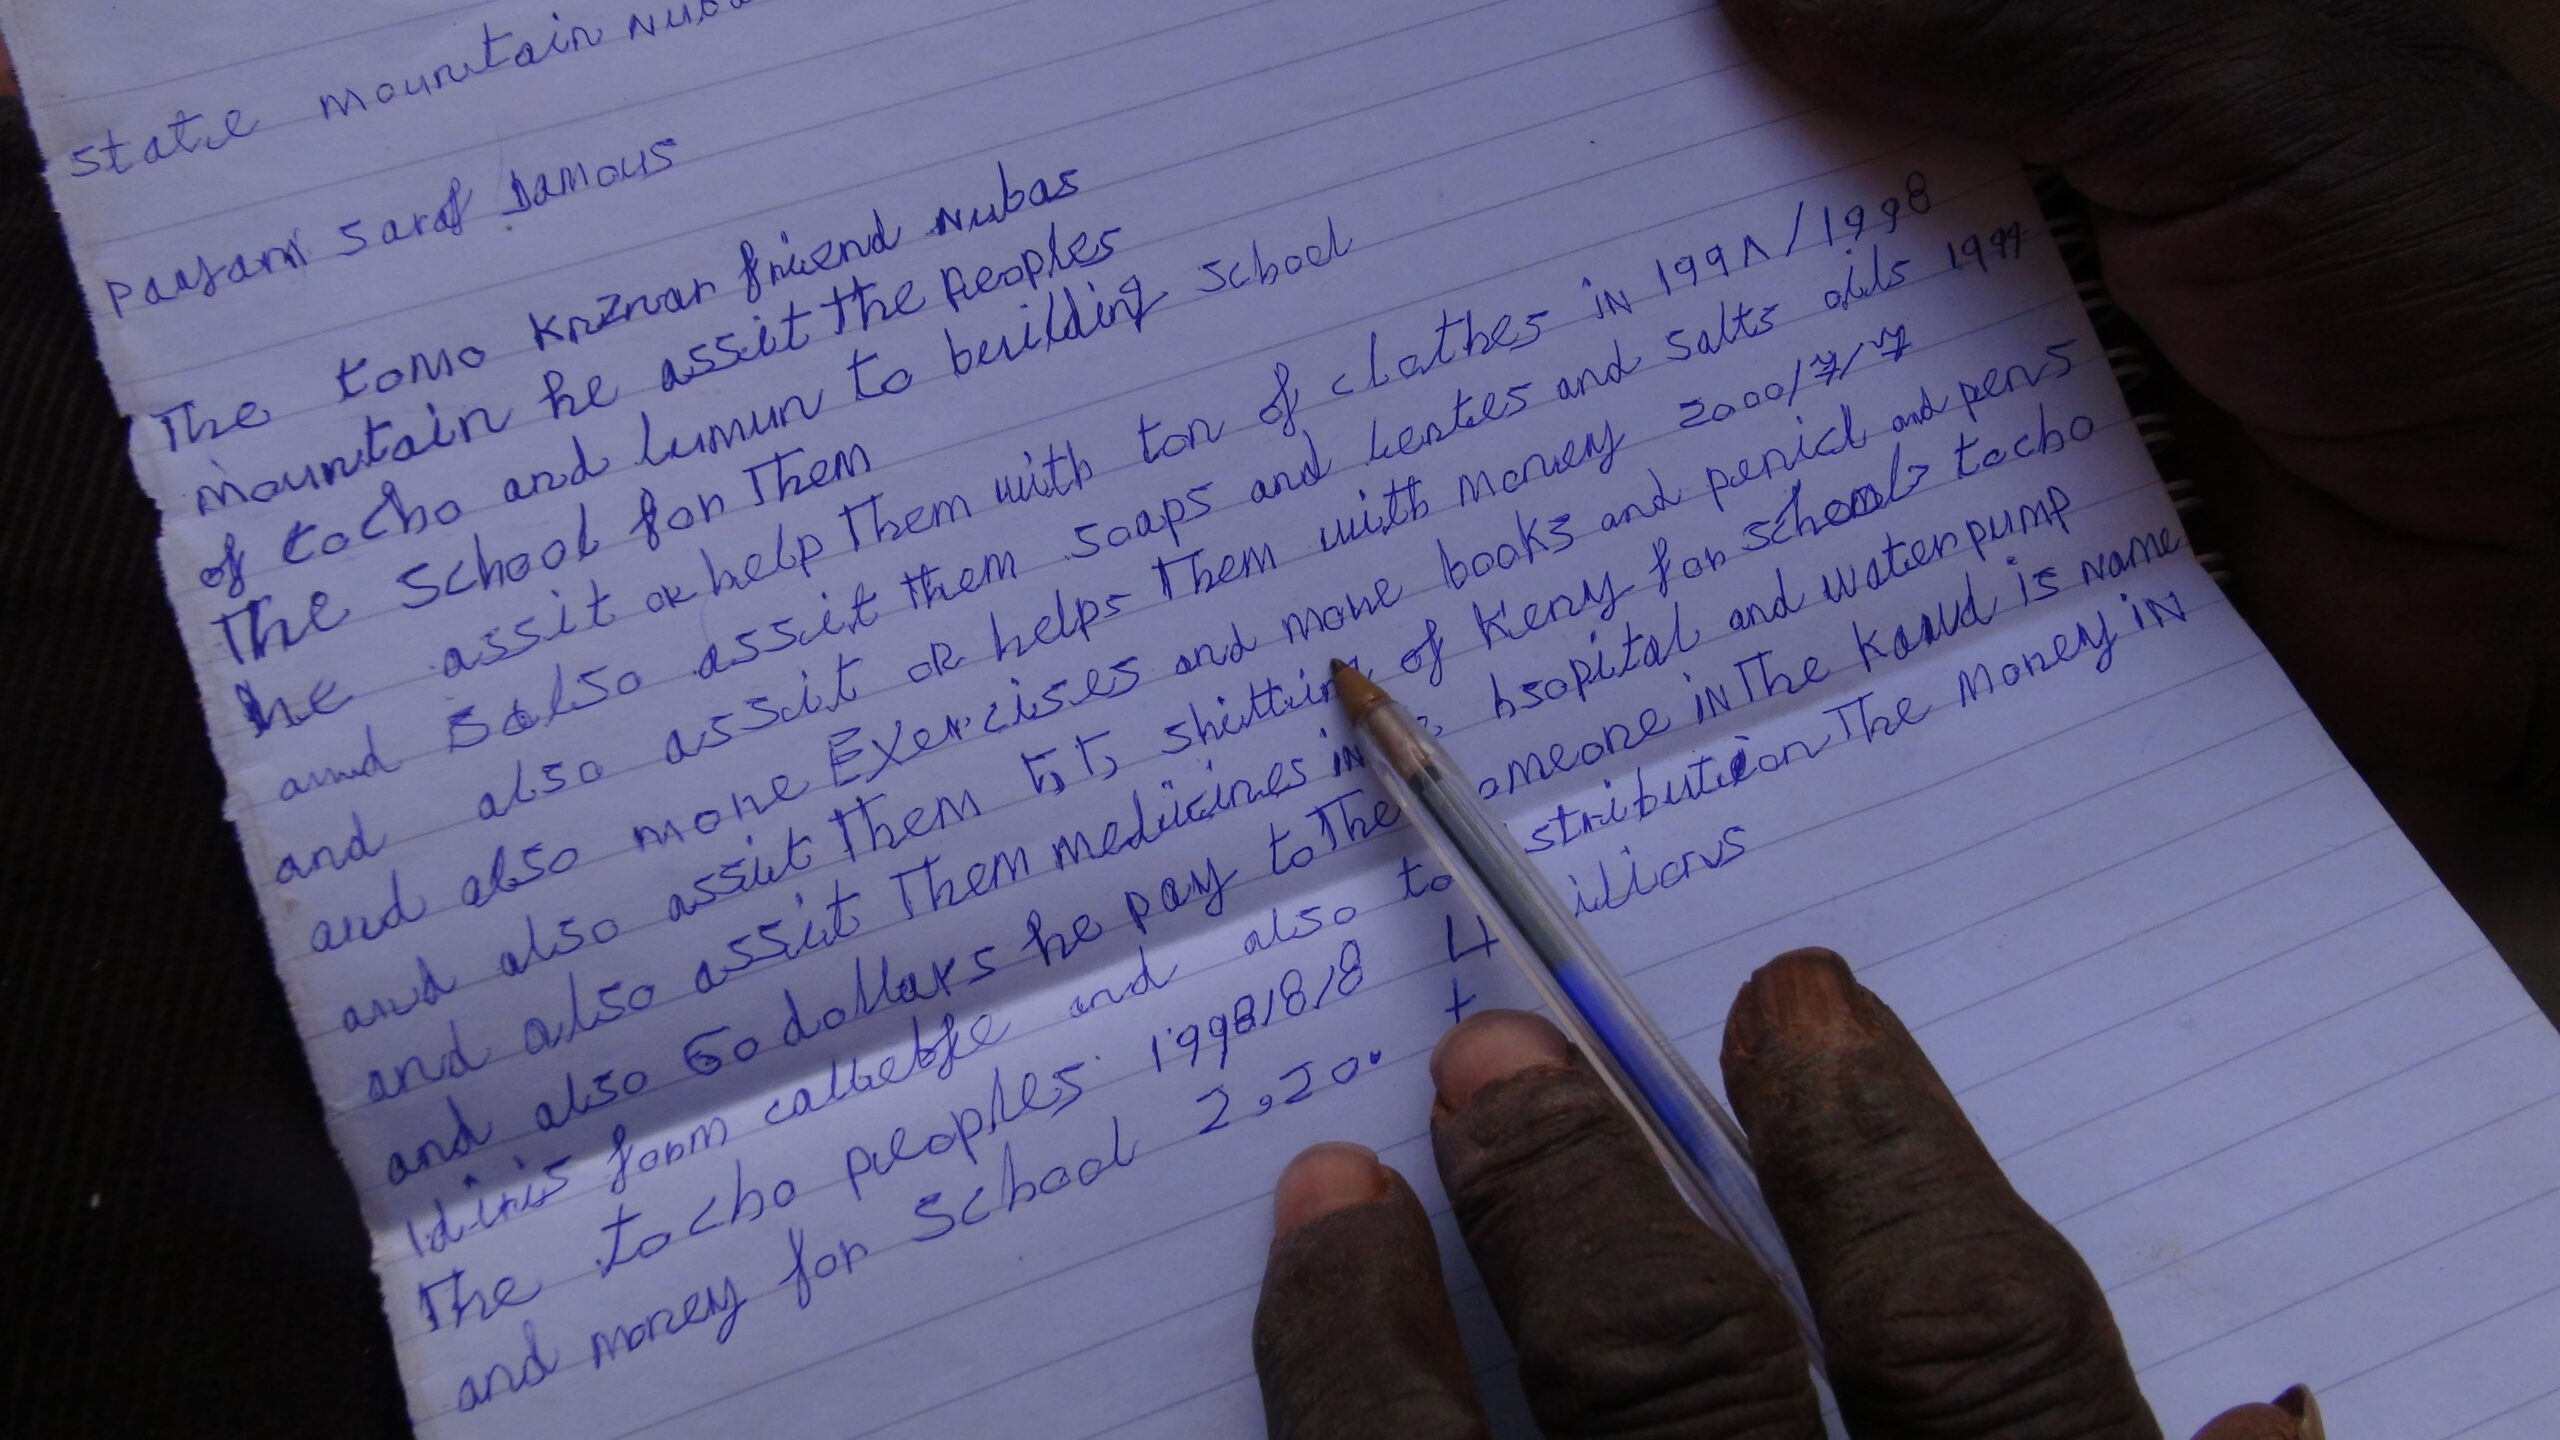 state mountain Nuba
payam saraf Damous
The tomo Kriznar friend Nubas
mountain he assit the peoples
of tocho and lumun to building school
The school for Them
he assit or help Them with ton of clothes in 199Λ/1998
and also assit them soaps and lentes and salts oils 1999
and also assit or helps Them with money 2000/7/7
and also more Exercises and more books and pencil and pens
and also assit Them 5,5, shitting of Keny for school tocho
and also assit Them medicines in hsopital and water pump
and also 60 dollars he pay to The someone in The Kaud is name
Idiris form and also to distribution The money in
The tocho peoples 1998/8/8 4
and money for school 2,200 +